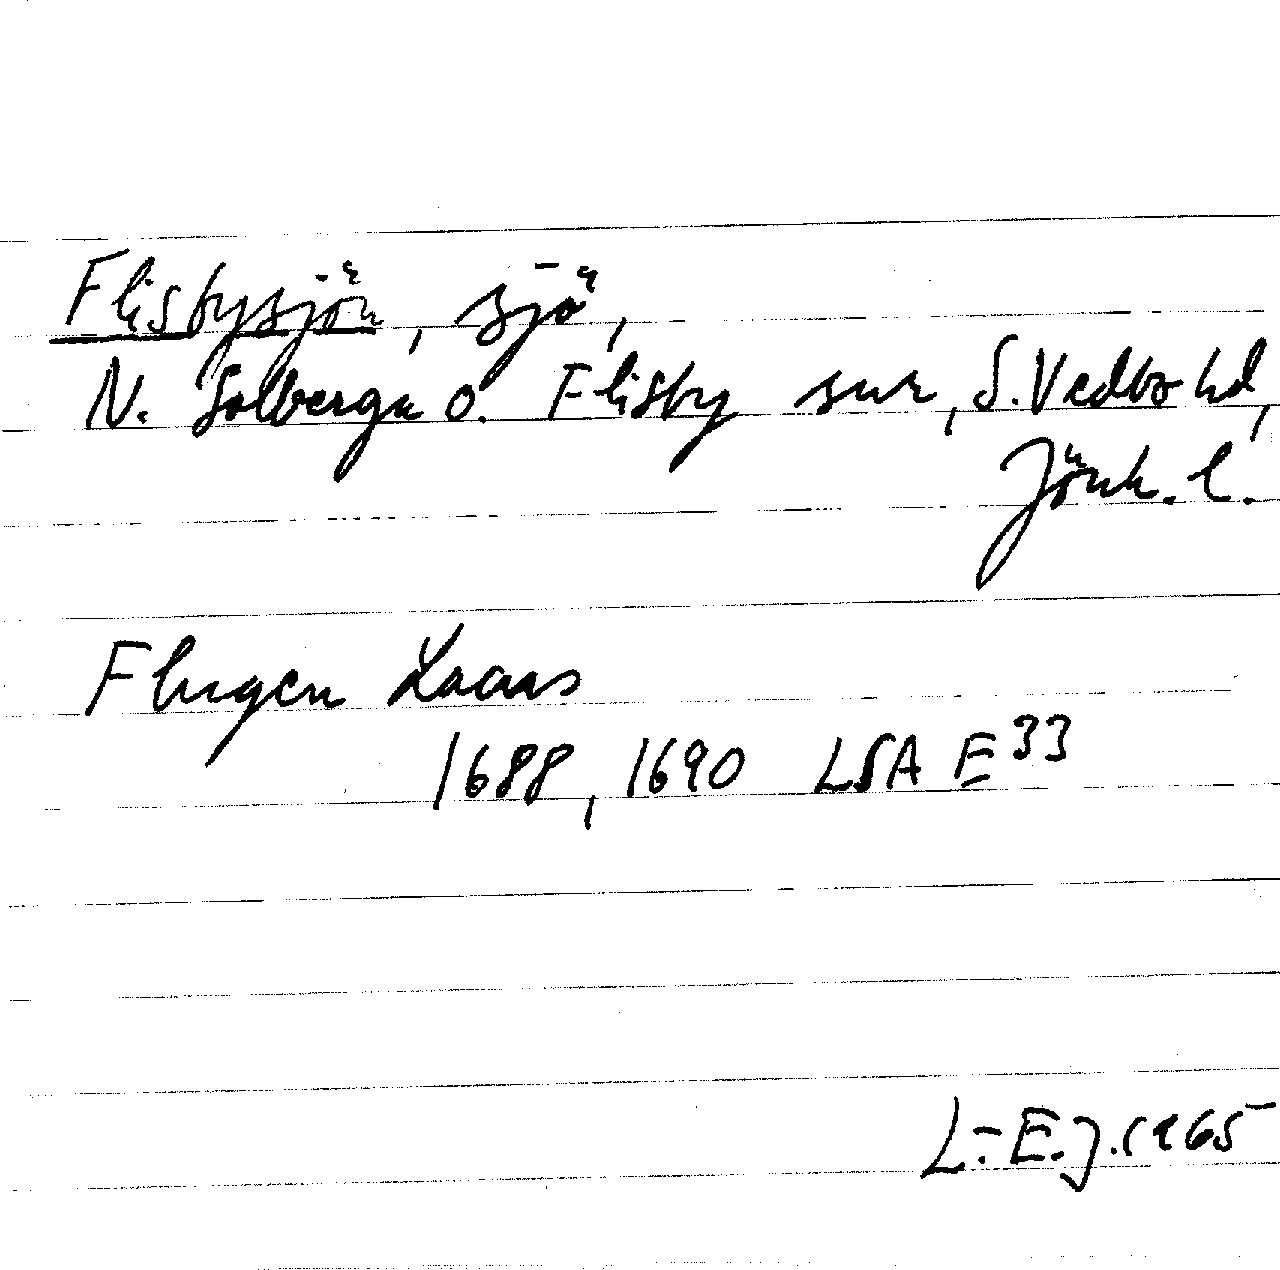 Flisbysjön, sjö,
N. Solberga o. Flisby snr, S. Vedbo hd,
Jönk. l.
Flugen Laaus
1688, 1690 LSA E33
L-E.J. 1965